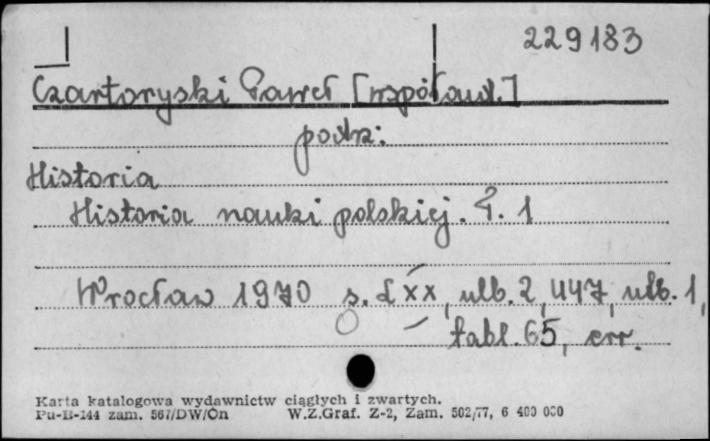 229183
Czartoryski Paweł [współaut.]
podz:
Historia
Historia nauki polskiej. T. 1
Wrocław 1970 s. LXX, nlb. 2, 447, nlb. 1,
tabl. 65, err.
Karta katalogowa wydawnictw ciągłych i zwartych.
Pu-B-144 zam. 567/DW/On W.Z.Graf. Z-2, Zam. 502/77, 6 400 000